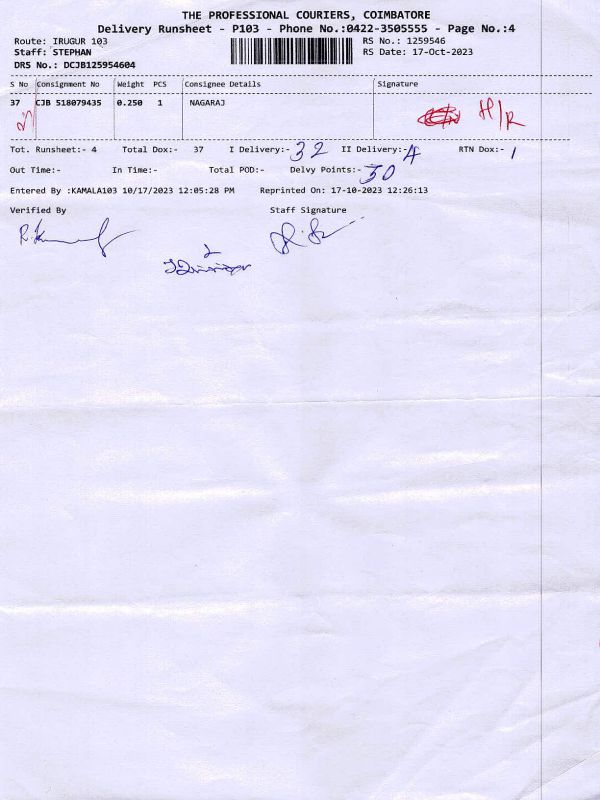 THE PROFESSIONAL COURIERS, COIMBATORE
Delivery Runsheet - P103 - Phone No.:0422-3505555 - Page No.:4
Route: IRUGUR 103 RS No.: 1259546
Staff: STEPHAN RS Date: 17-Oct-2023
DRS No.: DCJB125954604
S No Consignment No Weight PCS Consignee Details Signature
37 CJB 518079435 0.250 1 NAGARAJ H/R
Tot. Runsheet:- 4 Total Dox:- 37 I Delivery:- 32 II Delivery:- 4 RTN Dox:- 1
Out Time:- In Time:- Total POD:- Delvy Points:- 30
Entered By :KAMALA103 10/17/2023 12:05:28 PM Reprinted On: 17-10-2023 12:26:13
Verified By Staff Signature